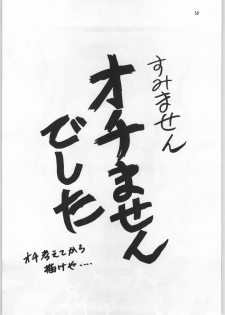 50
すみません
オチません
でした
オチ考えてから
描けや‥‥